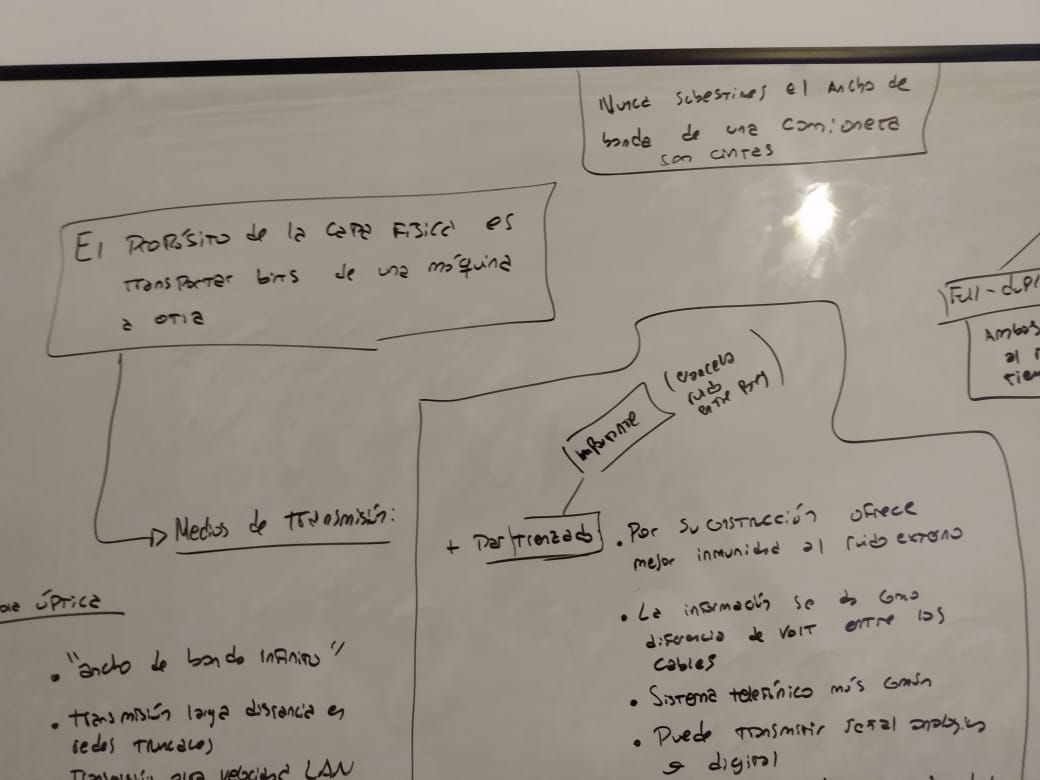 Nunca subestimes el ancho de
banda de una camioneta
son cintas
El propósito de la capa física es
transportar bits de una máquina
a otra
Full-dupl
Ambos
al
tiem
(cancela
ruido
entre
importante
Medios de transmisión:
+ Par trenzado
• Por su construcción ofrece
mejor inmunidad al ruido externo
• La información se da como
diferencia de volt entre los
cables
• Sistema telefónico más común
• Puede transmitir señal analógica
o digital
óptica
• "ancho de banda infinito"
• transmisión larga distancia en
redes truncales
velocidad LAN